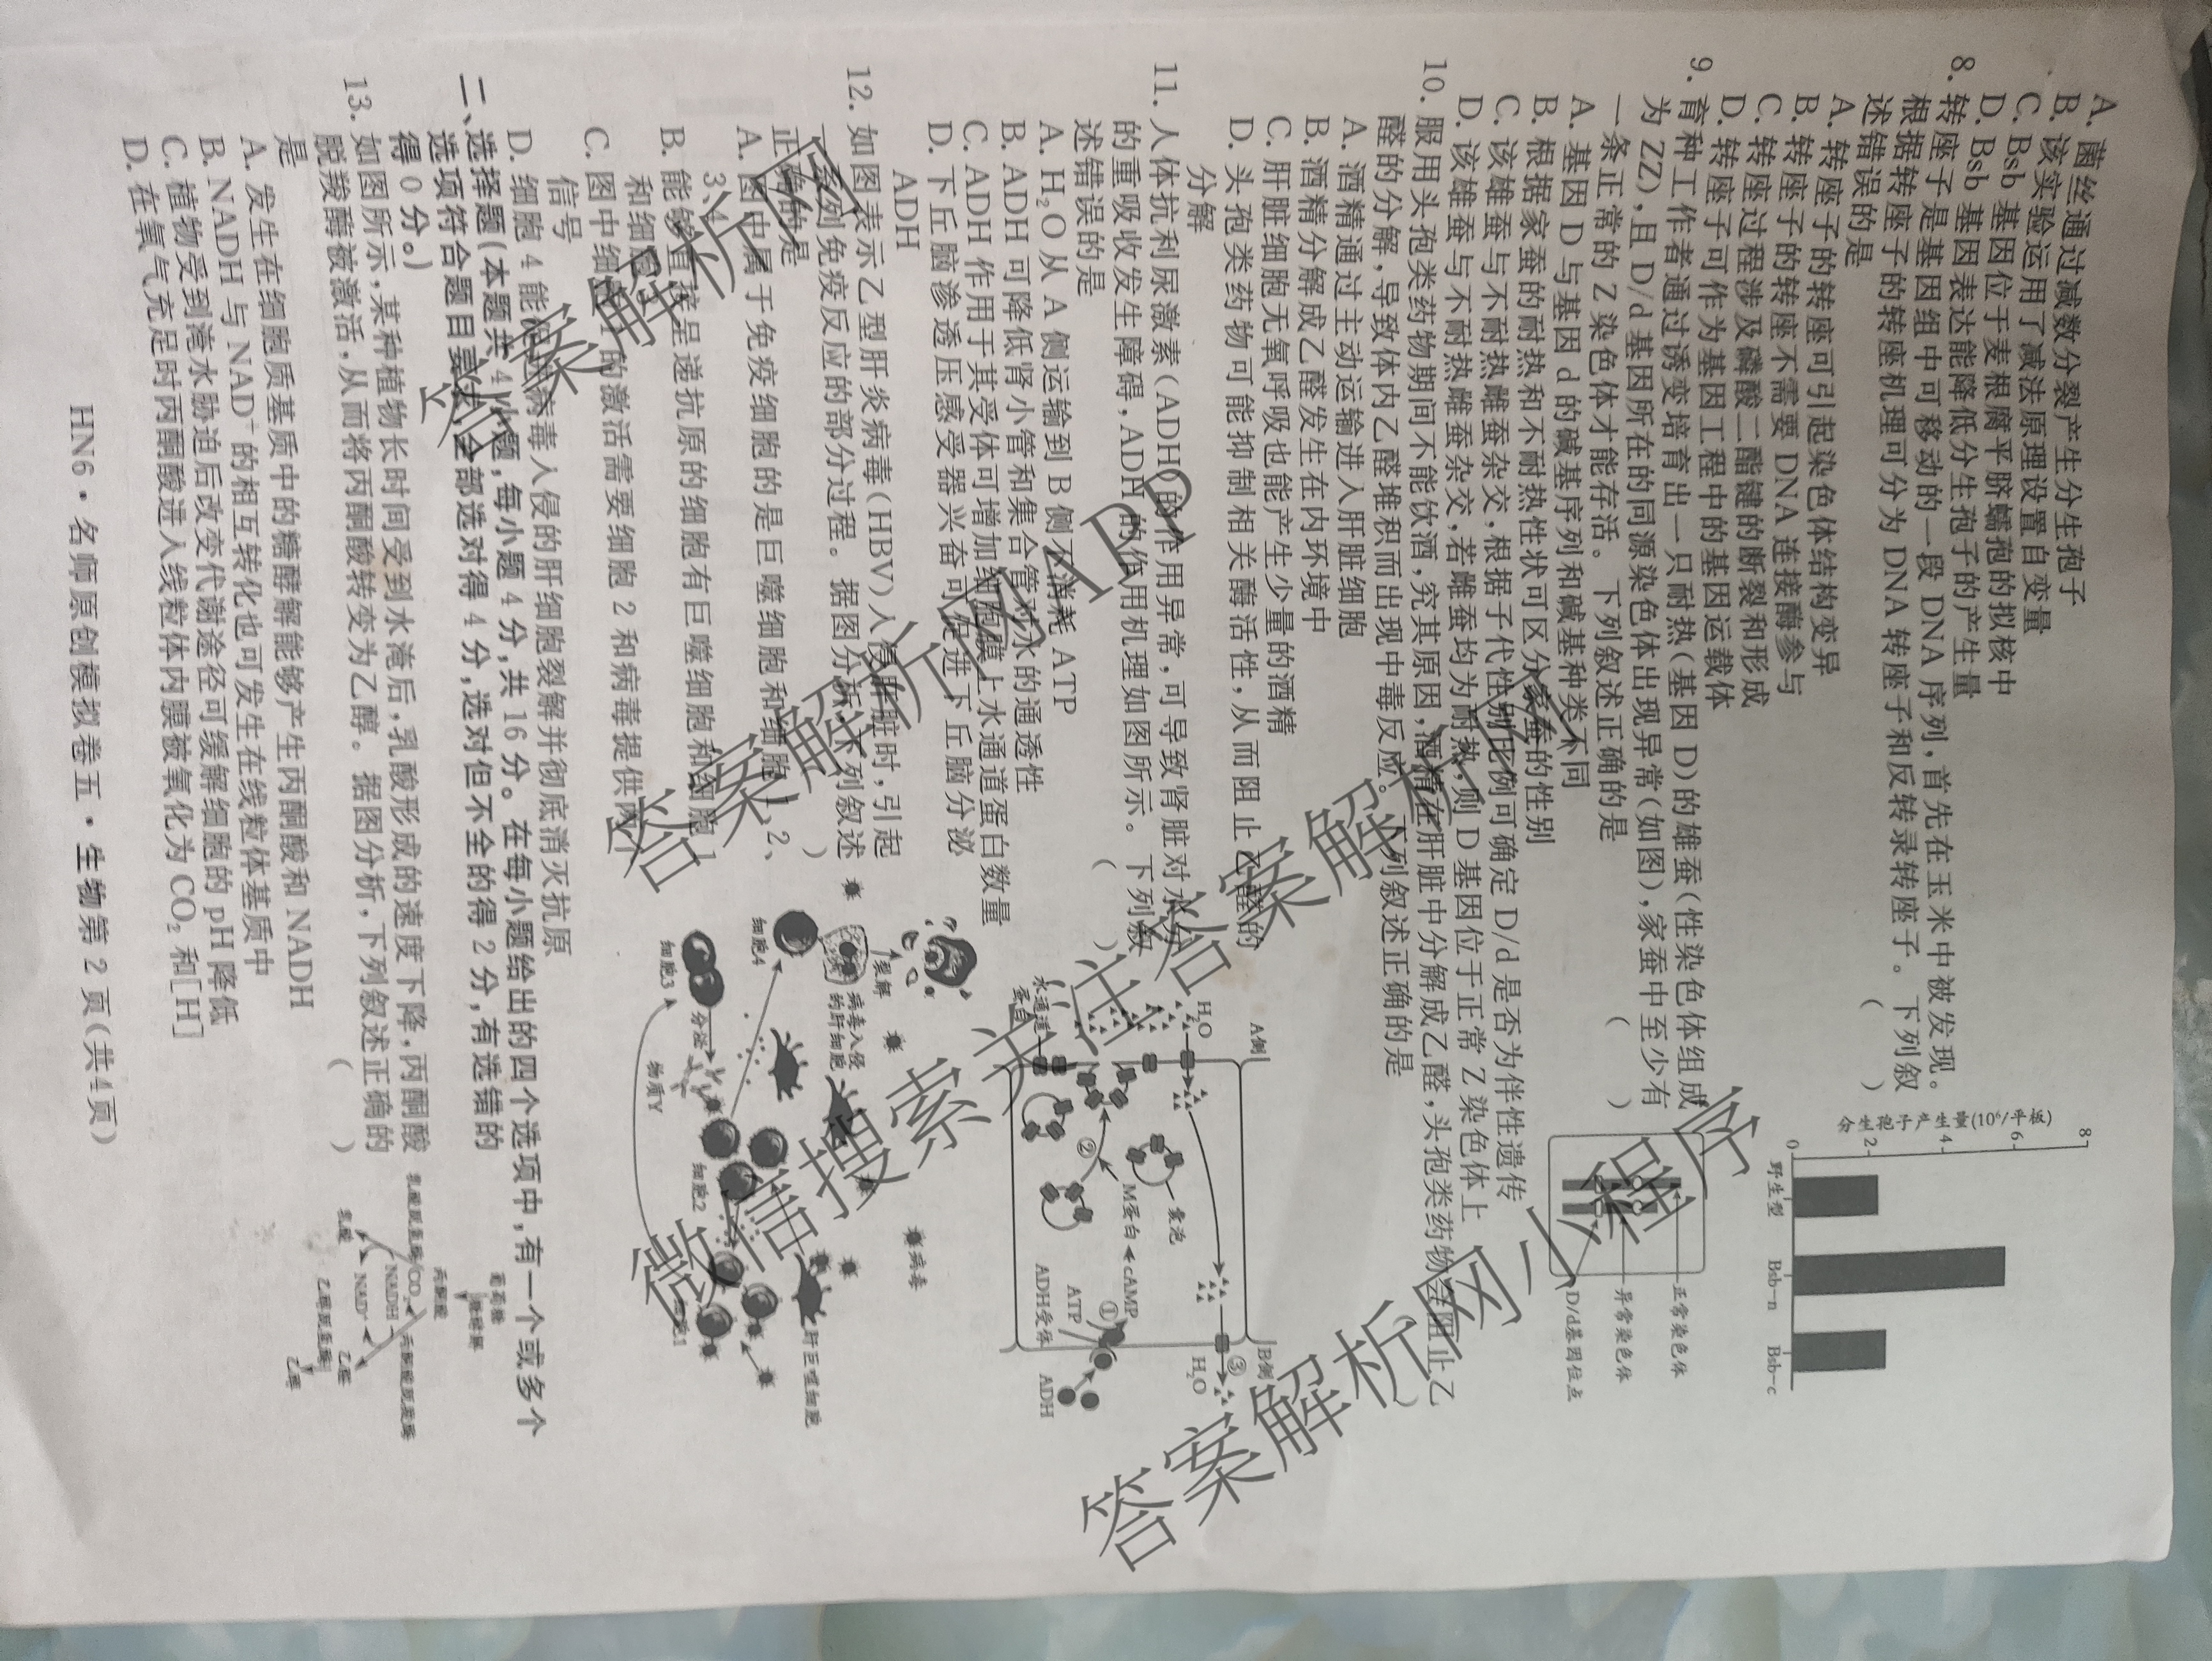 A. 菌丝通过减数分裂产生分生孢子
B. 该实验运用了减法原理设置自变量
C. Bsb 基因位于麦根腐平脐蠕孢的拟核中
D. Bsb 基因表达能降低分生孢子的产生量
分生孢子产生量(10⁶/平板)
8
6
4
2
0
野生型 Bsb-n Bsb-c
8. 转座子是基因组中可移动的一段 DNA 序列,首先在玉米中被发现。
根据转座子的转座机理可分为 DNA 转座子和反转录转座子。下列叙
述错误的是 ( )
A. 转座子的转座可引起染色体结构变异
B. 转座子的转座不需要 DNA 连接酶参与
C. 转座过程涉及磷酸二酯键的断裂和形成
D. 转座子可作为基因工程中的基因运载体
9. 育种工作者通过诱变培育出一只耐热(基因 D)的雄蚕(性染色体组成
为 ZZ),且 D/d 基因所在的同源染色体出现异常(如图),家蚕中至少有
一条正常的 Z 染色体才能存活。下列叙述正确的是 ( )
A. 基因 D 与基因 d 的碱基序列和碱基种类不同
B. 根据家蚕的耐热和不耐热性状可区分家蚕的性别
C. 该雄蚕与不耐热雌蚕杂交,根据子代性别比例可确定 D/d 是否为伴性遗传
D. 该雄蚕与不耐热雌蚕杂交,若雌蚕均为耐热,则 D 基因位于正常 Z 染色体上
正常染色体
异常染色体
D/d基因位点
10. 服用头孢类药物期间不能饮酒,究其原因,酒精在肝脏中分解成乙醛,头孢类药物会阻止乙
醛的分解,导致体内乙醛堆积而出现中毒反应。下列叙述正确的是 ( )
A. 酒精通过主动运输进入肝脏细胞
B. 酒精分解成乙醛发生在内环境中
C. 肝脏细胞无氧呼吸也能产生少量的酒精
D. 头孢类药物可能抑制相关酶活性,从而阻止乙醛的
分解
11. 人体抗利尿激素(ADH)的作用异常,可导致肾脏对水分
的重吸收发生障碍,ADH 的作用机理如图所示。下列叙
述错误的是 ( )
A. H₂O 从 A 侧运输到 B 侧不消耗 ATP
B. ADH 可降低肾小管和集合管对水的通透性
C. ADH 作用于其受体可增加细胞膜上水通道蛋白数量
D. 下丘脑渗透压感受器兴奋可促进下丘脑分泌
ADH
A侧
B侧
H₂O
H₂O
③
囊泡
M蛋白
cAMP
①
②
ATP
ADH受体
ADH
水通道
蛋白
12. 如图表示乙型肝炎病毒(HBV)入侵肝脏时,引起
一系列免疫反应的部分过程。据图分析,下列叙述
正确的是 ( )
A. 图中属于免疫细胞的是巨噬细胞和细胞 1、2、
3、4
B. 能够直接呈递抗原的细胞有巨噬细胞和细胞 1
和细胞
C. 图中细胞 1 的激活需要细胞 2 和病毒提供两个
信号
D. 细胞 4 能使病毒入侵的肝细胞裂解并彻底消灭抗原
病毒
裂解
病毒入侵
的肝细胞
肝巨噬细胞
细胞4
细胞3
分泌
物质Y
细胞2
细胞1
二、选择题(本题共 4 小题,每小题 4 分,共 16 分。在每小题给出的四个选项中,有一个或多个
选项符合题目要求,全部选对得 4 分,选对但不全的得 2 分,有选错的
得 0 分。)
13. 如图所示,某种植物长时间受到水淹后,乳酸形成的速度下降,丙酮酸
脱羧酶被激活,从而将丙酮酸转变为乙醇。据图分析,下列叙述正确的
是 ( )
A. 发生在细胞质基质中的糖酵解能够产生丙酮酸和 NADH
B. NADH 与 NAD⁺ 的相互转化也可发生在线粒体基质中
C. 植物受到淹水胁迫后改变代谢途径可缓解细胞的 pH 降低
D. 在氧气充足时丙酮酸进入线粒体内膜被氧化为 CO₂ 和[H]
葡萄糖
糖酵解
丙酮酸
乳酸脱氢酶
CO₂
丙酮酸脱羧酶
NADH
NAD⁺
乳酸
乙醛
乙醇脱氢酶
乙醇
HN6·名师原创模拟卷五·生物第 2 页(共4页)
答案解析网
答案解析网APP
微信搜索关注答案解析网
答案解析网小程序